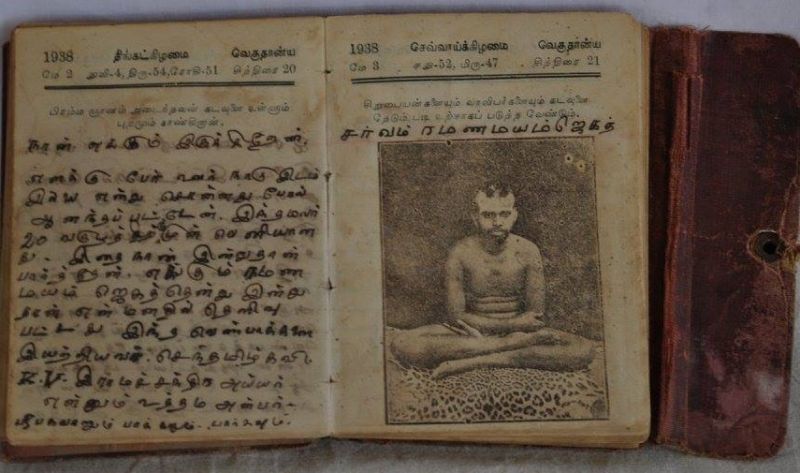 1938 திங்கட்கிழமை வெகுதான்ய
மே 2 அவி-4, திரு-54, ரோகி-51 சித்திரை 20
பிரம்ம ஞானம் அடைந்தவன் கடவுளை உள்ளும்
புறமும் காண்கிறான்.
நான் எங்கும் இருக்கிறேன்.
எனக்கு பேர் ஊர் நாடு இடம்
இல்லை என்று சொன்னது போல்
ஆனந்தப் பட்டேன். இந்தமலர்
20 வருடத்திற்குமுன் வெளியான
து. இதை நான் இன்றுதான்
பார்த்தேன். எங்கும் ரமண
மயம் ஜெகத்தென்று இன்று
தான் என் மனதில் தெளிவு
பட்டது இந்த வெண்பாக்களை
இயற்றியவர். செந்தமிழ்க்கவி
K.V. இராமச்சந்திர அய்யர்
என்னும் உத்தம அன்பர்.
ஸ்ரீபகவானும்
1938 செவ்வாய்க்கிழமை வெகுதான்ய
மே 3 சது-52, மிரு-47 சித்திரை 21
சிறுபையன்களையும் வாலிபர்களையும் கடவுளை
தேடும்படி உற்சாகப் படுத்த வேண்டும்.
சர்வம் ரமணமயம்ஜெகத்